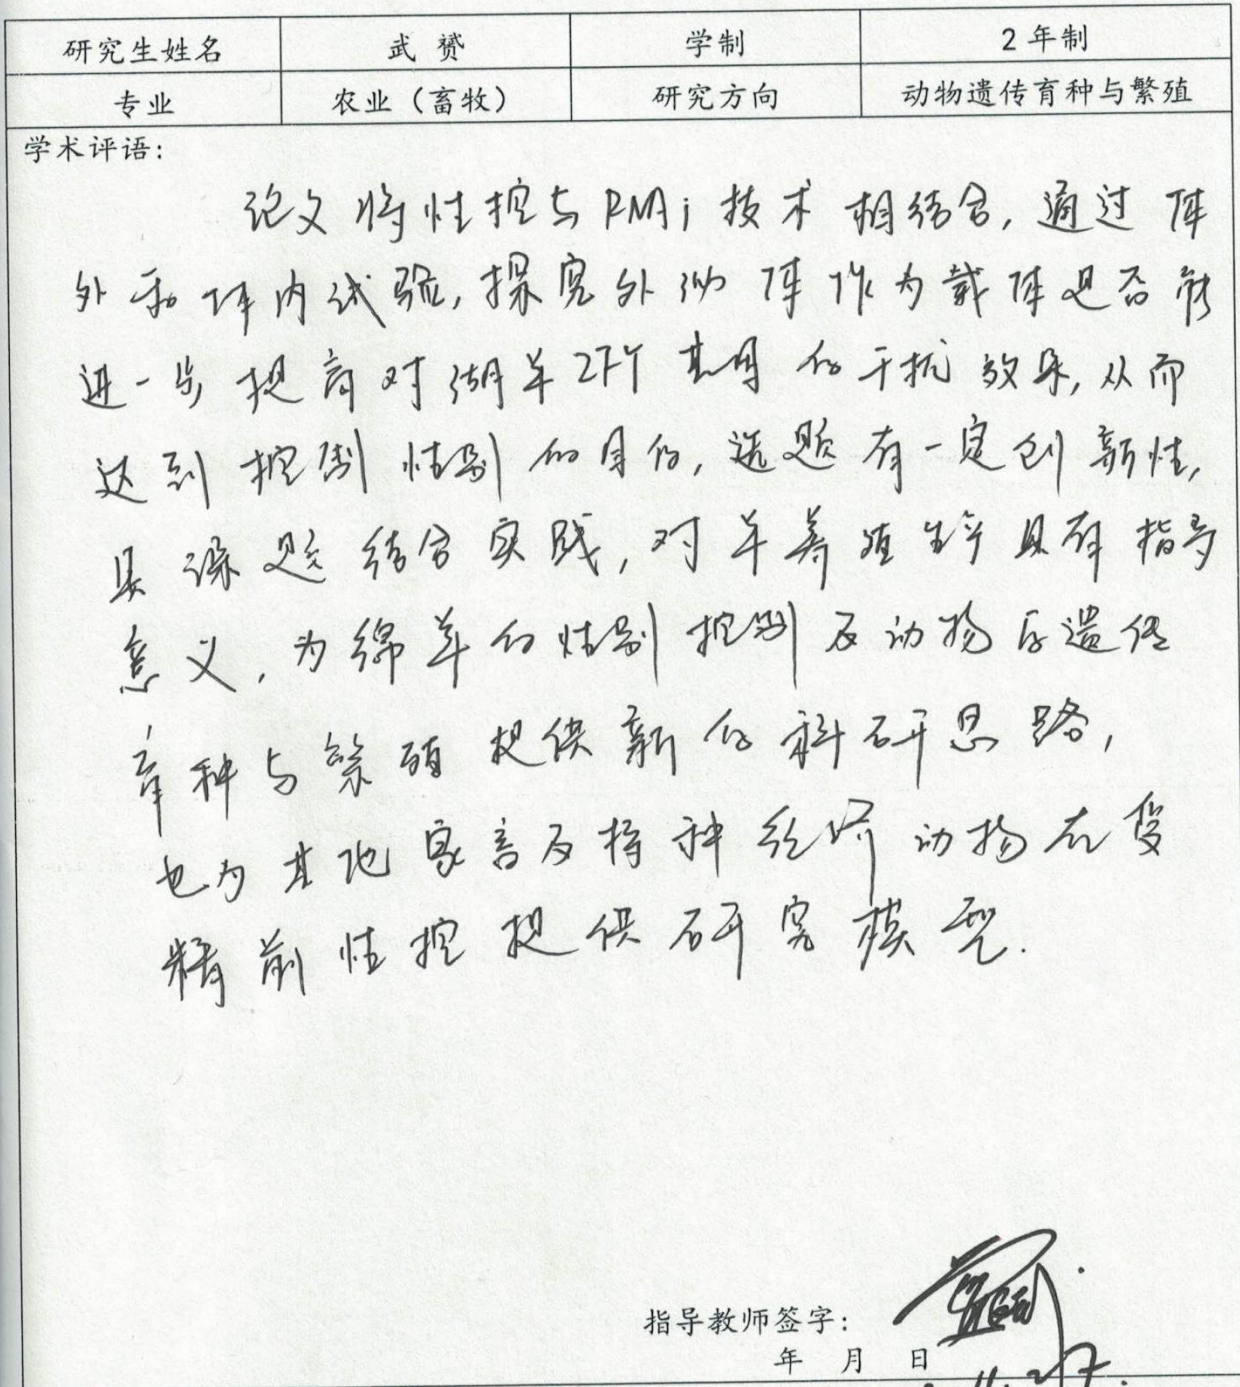 研究生姓名 武赟 学制 2年制
专业 农业（畜牧） 研究方向 动物遗传育种与繁殖
学术评语：
论文将性控与RNAi技术相结合，通过体
外和体内试验，探究外泌体作为载体是否能
进一步提高对湖羊ZFY基因的干扰效果，从而
达到控制性别的目的，选题有一定创新性，
且课题结合实践，对羊养殖生产具有指导
意义，为绵羊的性别控制及动物后遗传
育种与繁殖提供新的科研思路，
也为其他家畜及特种经济动物在受
精前性控提供研究模型.
指导教师签字：
年 月 日